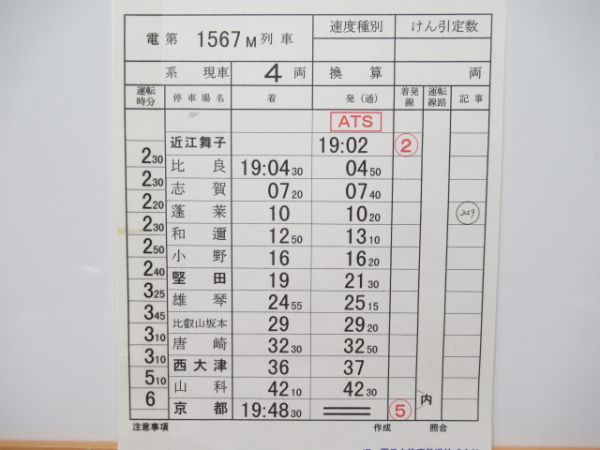 電 第 1567M 列車 速度種別 けん引定数
系 現車 4 両 換算 両
運転時分 停車場名 着 発(通) 着発線 運転線路 記事
ATS
近江舞子 19:02 ②
2 30
比良 19:04 30 04 50
2 30
志賀 07 20 07 40
2 20
蓬莱 10 10 20
2 30
和邇 12 50 13 10
2 50
小野 16 16 20
2 40
堅田 19 21 30
3 25
雄琴 24 55 25 15
3 45
比叡山坂本 29 29 20
3 10
唐崎 32 30 32 50
3 10
西大津 36 37
5 10
山科 42 10 42 30
6 内
京都 19:48 30 ⑤
注意事項 作成 照会